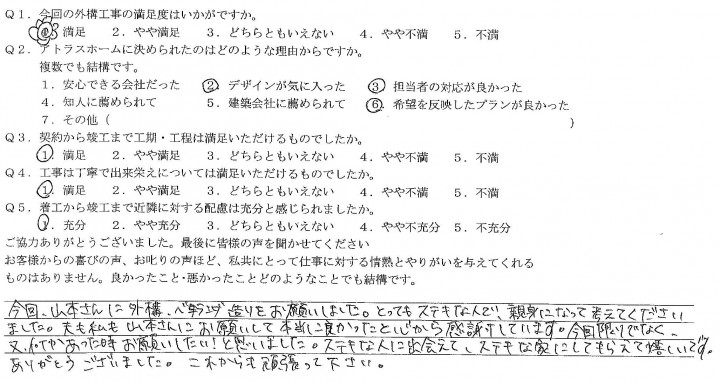 Q1．今回の外構工事の満足度はいかがですか。
1．満足　2．やや満足　3．どちらともいえない　4．やや不満　5．不満
Q2．アトラスホームに決められたのはどのような理由からですか。
複数でも結構です。
1．安心できる会社だった　②．デザインが気に入った　③．担当者の対応が良かった
4．知人に薦められて　5．建築会社に薦められて　⑥．希望を反映したプランが良かった
7．その他（　　　）
Q3．契約から竣工まで工期・工程は満足いただけるものでしたか。
①．満足　2．やや満足　3．どちらともいえない　4．やや不満　5．不満
Q4．工事は丁寧で出来栄えについては満足いただけるものでしたか。
①．満足　2．やや満足　3．どちらともいえない　4．やや不満　5．不満
Q5．着工から竣工まで近隣に対する配慮は充分と感じられましたか。
①．充分　2．やや充分　3．どちらともいえない　4．やや不充分　5．不充分
ご協力ありがとうございました。最後に皆様の声を聞かせてください
お客様からの喜びの声、お叱りの声ほど、私共にとって仕事に対する情熱とやりがいを与えてくれる
ものはありません。良かったこと・悪かったことどのようなことでも結構です。
今回、山本さんに外構、造りをお願いしました。とってもステキな人で、親身になって考えてください
ました。夫も私も山本さんにお願いして本当に良かったと心から感謝しています。今回限りでなく、
又、何かあった時お願いしたい！と思いました。ステキな人に出会えて、ステキな家にしてもらえて嬉しいです。
ありがとうございました。これからも頑張って下さい。